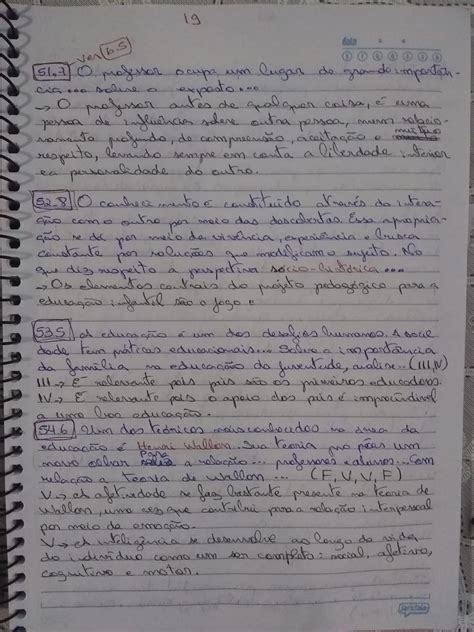 19
ver 6.5
data
51.7 O professor ocupa um lugar de grande importân
cia... sobre o exposto...
→ O professor antes de qualquer coisa, é uma
pessoa de influência sobre outra pessoa, num relacio
namento profundo, de compreensão, aceitação e mútuo
respeito, levando sempre em conta a liberdade interior
e a personalidade do outro.
52.8 O conhecimento é constituído através da intera-
ção com o outro por meio das descobertas. Essa apropria-
ção se dá por meio de vivência, experiência e busca
constante por soluções que modificam o sujeito. No
que diz respeito à perspectiva sócio-histórica...
→ Os elementos centrais do projeto pedagógico para a
educação infantil são o jogo e
53.5 A educação é um dos desafios humanos. A socie
dade tem práticas educacionais... Sobre a importância
da família na educação da juventude, analise.. (III, IV)
III → É relevante pois pais são os primeiros educadores.
IV → É relevante pois o apoio dos pais é imprescindível
a uma boa educação.
54.6 Um dos teóricos mais conhecidos na área da
educação é Henri Wallon. Sua teoria propões um
novo olhar para a relação... professores e alunos... Com
relação a teoria de Wallon... (F, V, V, F)
V → A afetividade se faz bastante presente na teoria de
Wallon, uma vez que contribui para a relação interpessoal
por meio da emoção.
V → A inteligência se desenvolve ao longo da vida
do indivíduo como um ser completo: social, afetivo,
cognitivo e motor.